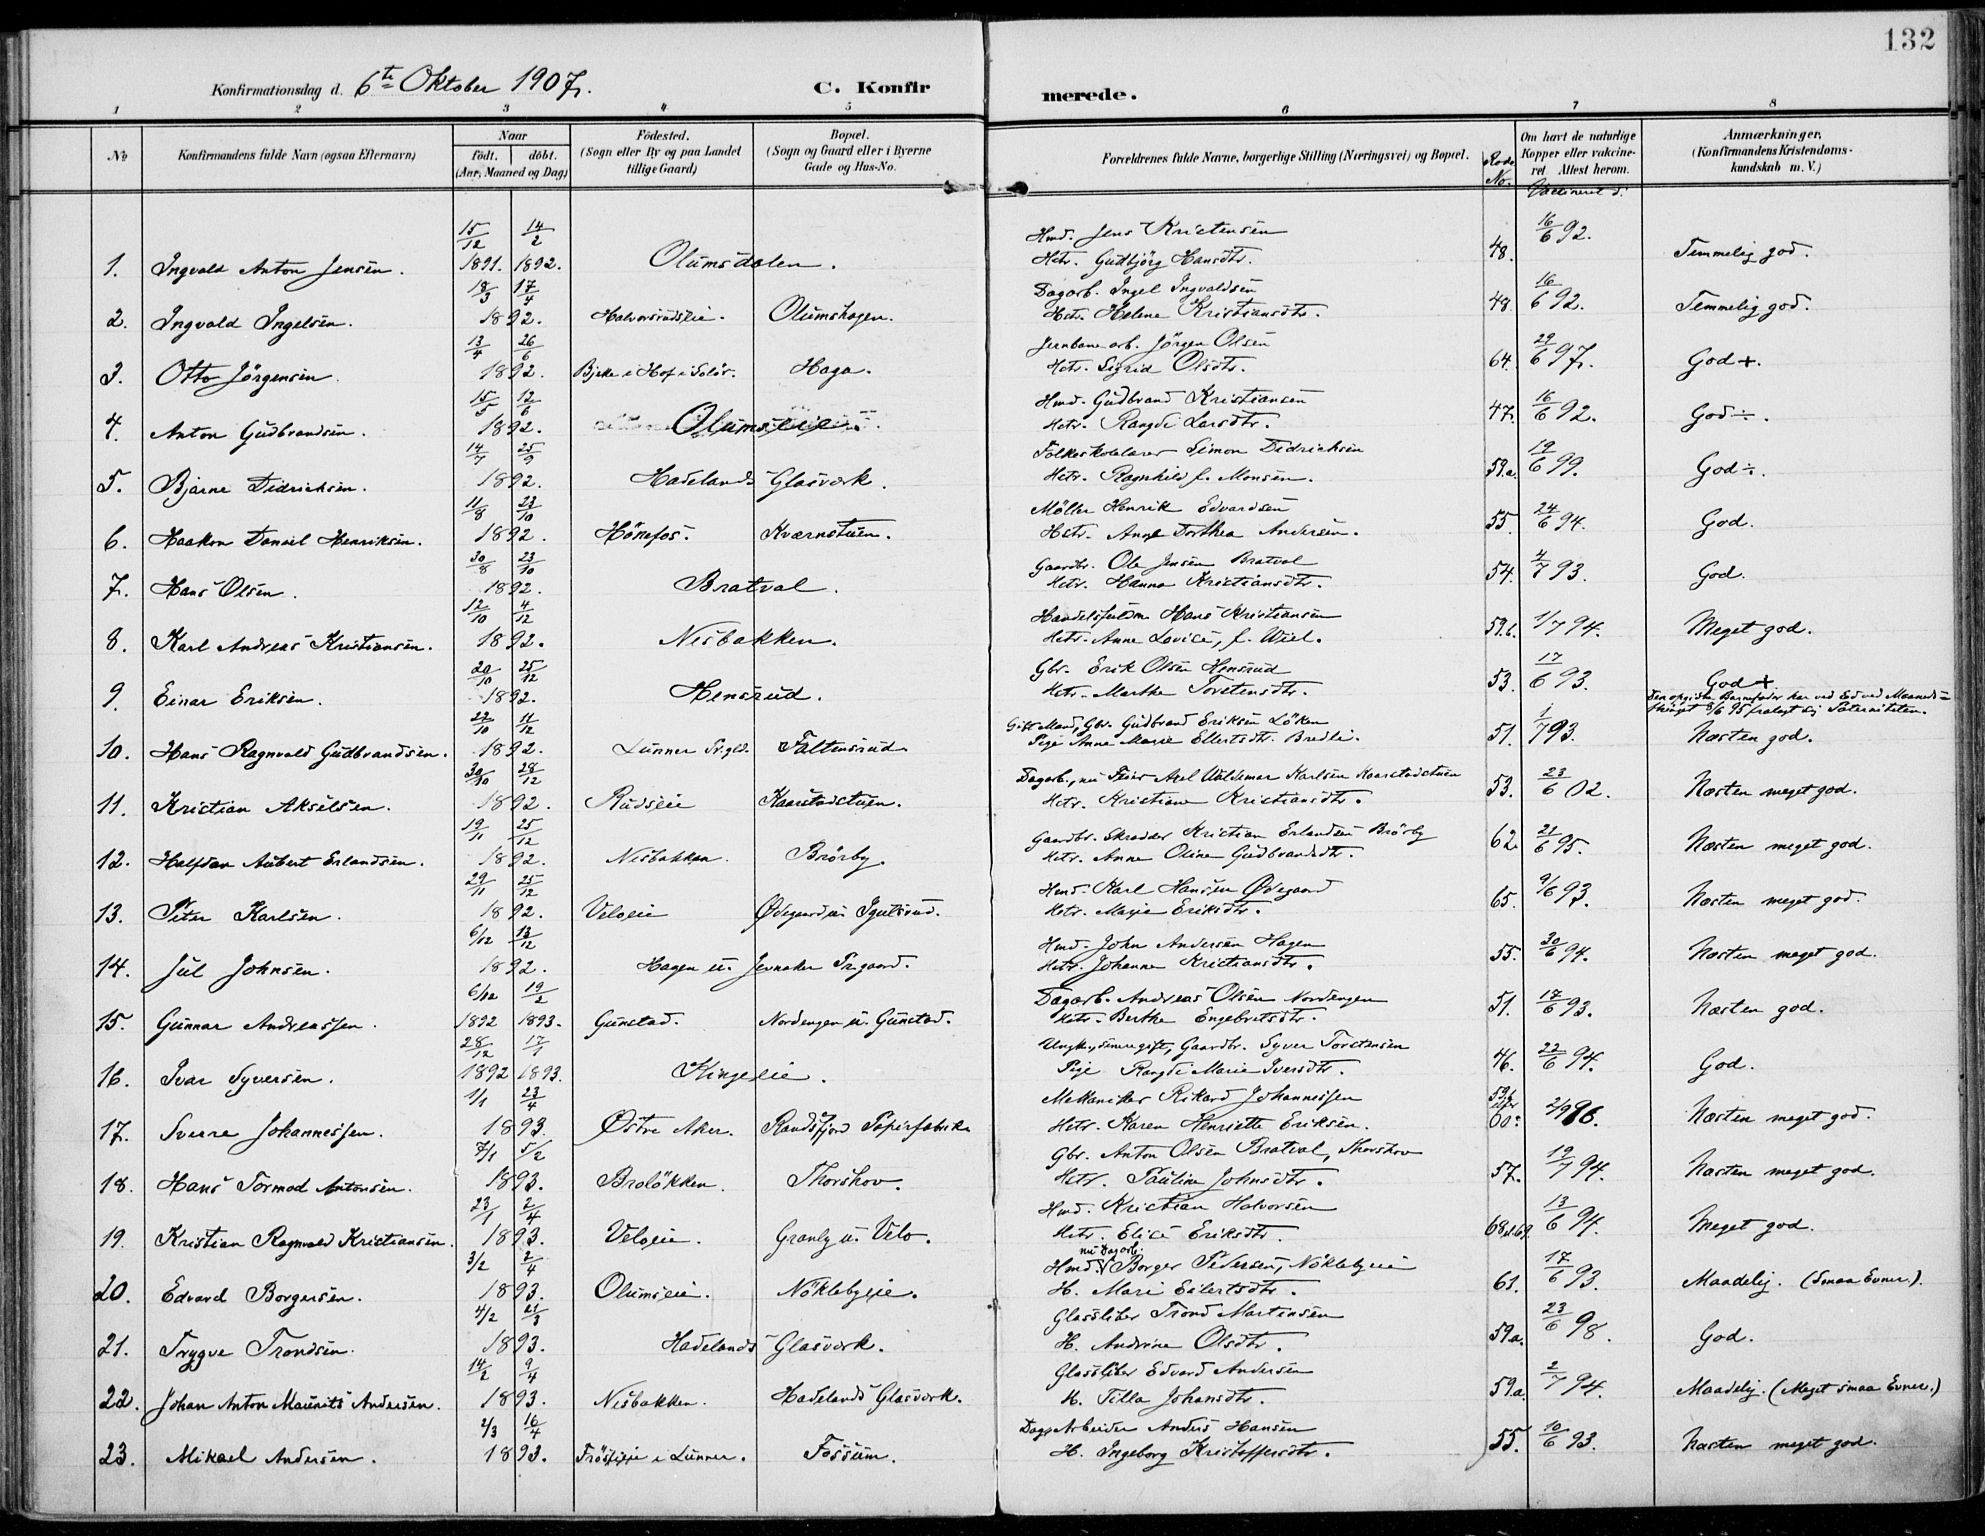 132
Konfirmationsdag d. 6te Oktober 1907.
C. Konfirmerede.
1 2 3 4 5 6 7 8
No | Konfirmandens fulde Navn (ogsaa Efternavn) | Naar født. døbt. (Aar, Maaned og Dag) | Fødested. (Sogn eller By og paa Landet tillige Gaard) | Bopæl. (Sogn og Gaard eller i Byerne Gade og Hus-No. | Forældrenes fulde Navne, borgerlige Stilling (Næringsvei) og Bopæl. | Rode No. | Om havt de naturlige Kopper eller vakcineret. Attest herom. Vaccineret d. | Anmærkninger. (Konfirmandens Kristendomskundskab m. V.)
1. Ingvald Anton Jensen. 15/12 1891. 14/2 1892. Olumsdalen. Hmd. Jens Kristensen Hstr. Gudbjörg Hansdtr. 48. 16/6 92. Temmelig god.
2. Ingvald Ingelsen. 18/3 17/4 1892. Halvorsrudseie. Olumshagen. Dagarb. Ingel Ingvaldsen Hstr. Helene Kristiansdtr. 48 16/6 92. Temmelig god.
3. Otto Jörgensen 13/4 26/6 1892. Bjeke i Hof i Solör. Haga. Jernbanearb. Jörgen Olsen Hstr. Sigrid Olsdtr. 64. 29/6 97. God +.
4. Anton Gudbrandsen. 15/5 12/6 1892. Olumseie. Hmd. Gudbrand Kristiansen Hstr. Rangdi Larsdtr. 47. 16/6 92. God ÷.
5. Bjarne Didrichsen. 14/7 25/9 1892. Hadelands Glasværk. Folkeskolelærer Simon Didrichsen Hstr. Ragnhild f. Monsen. 59.a. 19/6 99. God ÷.
6. Haakon Daniel Henriksen. 11/8 23/10 1892. Hönefos. Kværnstuen. Möller Henrik Edvardsen Hstr. Anne Dorthea Andersen. 55. 24/6 94. God.
7. Hans Olsen. 30/8 23/10 1892. Bratval. Gaardbr. Ole Jensen Bratval Hstr. Hanna Kristiansdtr. 54. 4/7 93. God.
8. Karl Andreas Kristiansen. 12/10 4/12 1892. Nesbakken. Handelsfuldm. Hans Kristiansen Hstr. Anne Lovise, f. Wiel. 59.b. 1/7 94. Meget god.
9. Einar Eriksen. 20/10 25/12 1892. Hensrud. Gbr. Erik Olsen Hensrud Hstr. Marthe Torstensdtr. 53. 17/6 93. God +
10. Hans Ragnvald Gudbrandsen. 22/10 11/12 1892. Lunner Prgld. Faltinsrud. Gift Mand, Gbr. Gudbrand Eriksen Löken Pige Anne Marie Ellertsdtr. Bredli. 51. 1/7 93. Den opgivne Barnefader har ved Ed ved Maanedsthinget 8/6 95 fralagt sig Paterniteten. Næsten god.
11. Kristian Akselsen. 30/10 28/12 1892. Rudseie Kaarstadstuen. Dagarb., nu Feier Axel Waldemar Karlsen Kaarstadstuen Hstr. Kristiane Kristiansdtr. 53. 23/6 02. Næsten meget god.
12. Halfdan Aubert Erlandsen. 19/11 25/12 1892. Nesbakken. Brörby. Gaardbr. Skrædder Kristian Erlandsen Brörby Hstr. Anne Oline Gudbrandsdtr. 62. 21/6 95. Næsten meget god.
13. Peter Karlsen. 29/11 25/12 1892. Veloeie Ødegaard u. Igulsrud. Hmd. Karl Hansen Ødegaard Hstr. Marie Eriksdtr. 65. 9/6 93. Næsten meget god.
14. Jul Johnsen. 6/12 13/12 1892. Hagen u. Jevnaker Prgaard. Hmd. John Andersen Hagen Hstr. Johanne Kristiansdtr. 55. 30/6 94. Næsten meget god.
15. Gunnar Andreassen. 6/12 1892 19/2 1893. Gunstad. Nordengen u. Gunstad. Dagarb. Andreas Olsen Nordengen Hstr. Berthe Engebretsdtr. 51. 17/6 93. Næsten god.
16. Ivar Syversen. 28/12 1892 17/1 1893. Kingeeie. Ungk., senere gift, Gaardbr. Syver Torstensen Pige Rangdi Marie Iversdtr. 46. 22/6 94. God.
17. Sverre Johannessen. 1/1 23/4 1893. Østre Aker. Randsfjord Papirfabrik Mekaniker Rikard Johannessen Hstr. Karen Henriette Eriksen. 60. 2/9 96. Næsten meget god.
18. Hans Tormod Antonsen. 7/1 5/2 1893. Brolökken. Thorshov. Gbr. Anton Olsen Bratval, Thorshov Hstr. Pauline Johnsdtr. 57. 19/7 94. Næsten meget god.
19. Kristian Ragnvald Kristiansen. 23/1 2/4 1893. Veloeie. Granly u. Velo. Hmd. Kristian Halvorsen Hstr. Elise Eriksdtr. 13/6 94. Meget god.
20. Edvard Borgersen. 3/2 2/4 1893. Olumseie. Nöklebyeie. Hmd. nu Dagarb. Borger Pedersen, Nöklebyeie H. Mari Eilertsdtr. 61. 17/6 93. Maadelig. (Smaa Evner.).
21. Trygve Trondsen. 4/2 21/3 1893. Hadelands Glasværk. Glassliber Trond Martinsen H. Andrine Olsdtr. 59a. 23/6 98. God.
22. Johan Anton Maurits Andersen. 14/2 9/4 1893. Nesbakken. Hadelands Glasværk. Glassliber Edvard Andersen H. Tilla Johansdtr. 59a. 2/7 94. Maadelig. (Meget smaa Evner.)
23. Mikael Andersen. 2/3 16/4 1893. Fröslieie i Lunner. Fossum. Dagarbeider Anders Hansen H. Ingeborg Kristoffersdtr. 55. 10/6 93. Næsten meget god.